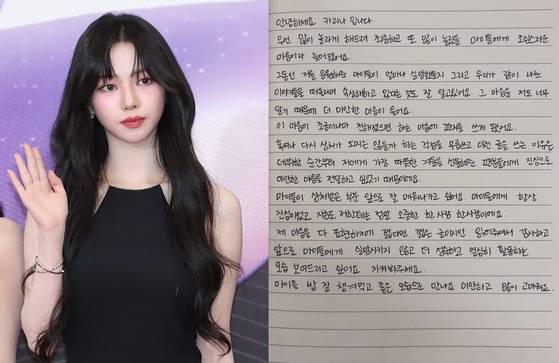 안녕하세요 카리나 입니다
우선 많이 놀라게 해드려 죄송하고 또 많이 놀랐을 마이들에게 조심스러운
마음이라 늦어졌어요.
그동안 저를 응원해준 마이들이 얼마나 실망했을지 그리고 우리가 같이 나눈
이야기들을 떠올리며 속상해하고 있다는것도 잘 알고있어요. 그 마음을 저도 너무
알기 때문에 더 미안한 마음이 들어요.
이 마음이 조금이나마 전해졌으면 하는 마음에 편지를 쓰게 됐어요.
혹여나 다시 상처가 되지는 않을까 하는 걱정을 무릅쓰고 이런 글을 쓰는 이유는
데뷔한 순간부터 저에게 가장 따뜻한 겨울을 선물해준 팬분들에게 진심으로
미안한 마음을 전달하고 싶었기 때문이에요.
마이들이 상처받은 부분 앞으로 잘 메워나가고 싶어요. 마이들에게 항상
진심이었고 지금도 저한테는 정말 소중한 한 사람 한사람이에요.
제 마음을 다 표현하기에 짧다면 짧은 글이지만
앞으로 마이들에게 실망시키지 않고 더 성숙하고 열심히 활동하는
모습 보여드리고 싶어요 지켜봐주세요.
마이들 밥 잘 챙겨먹고 좋은 모습으로 만나요 미안하고 많이 고마워요.